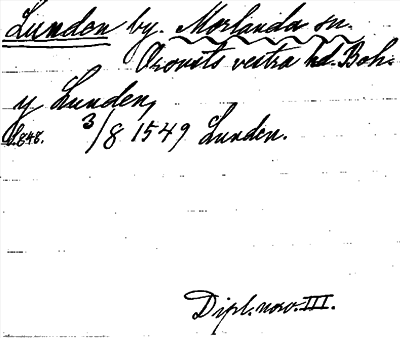 Lunden by. Morlanda sn.
Orousts vestra hd. Boh.
y Lunden,
S.848. 3/8 1549 Lunden.
Dipl. norv. III.